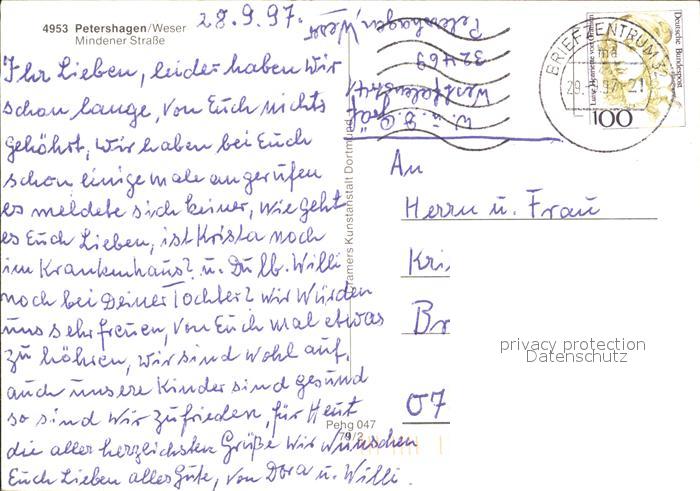 4953 Petershagen/Weser
Mindener Straße
28.9.97.
Ihr Lieben, leider haben wir
schon lange, von Euch nichts
gehöhrt, wir haben bei Euch
schon einige male angerufen
es meldete sich keiner, wie geht
es Euch Lieben, ist Krista noch
im Krankenhaus? u. Du lb. Willi
noch bei Deiner Tochter? wir würden
uns sehr freuen, von Euch mal etwas
zu höhren, wir sind wohl auf,
auch unsere Kinder sind gesund
so sind wir zufrieden, für Heut
die aller herzlichsten Grüße wir wünschen
Euch Lieben alles Gute, von Dora u. Willi.
Cramers Kunstanstalt Dortmund
Pehg 047
W. u. D.
32469
Petershagen, Weser
BRIEFZENTRUM 32
29.-9.97-21
Deutsche Bundespost
100
An
Herrn u. Frau
Kri
Br
07
privacy protection
Datenschutz